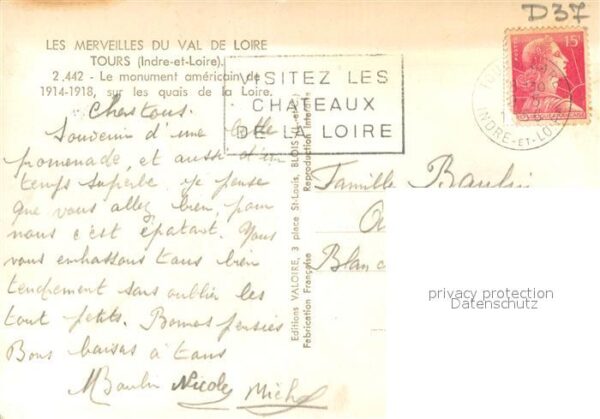 D37
LES MERVEILLES DU VAL DE LOIRE
TOURS (Indre-et-Loire)
2.442 - Le monument américain de
1914-1918, sur les quais de la Loire.
VISITEZ LES
CHATEAUX
DE LA LOIRE
POSTES 15F
INDRE-ET-LOIRE
Chers tous.
Souvenir d'une belle
promenade, et aussi d'un
temps superbe je pense
que vous allez bien, pour
nous c'est épatant. Nous
vous embrassons tous bien
tendrement sans oublier les
tout petits. Bonnes pensées
Bons baisers à tous
Nicole Mich
Editions VALOIRE, 3 place St-Louis, BLOIS
Fabrication Française Reproduction Interdite
Famille
Blanc
privacy protection
Datenschutz